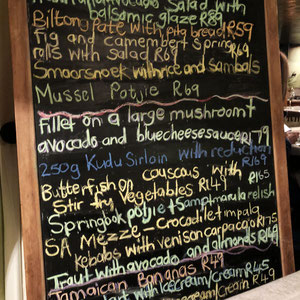 Avocado Salad with
balsamic glaze R89
Biltong Pate with pita bread R59
Fig and camembert Spring
rolls with Salad R69
Smoorsnoek with rice and sambals
Mussel Potjie R69
Fillet on a large mushroom +
avocado and bluecheese sauce R179
250g Kudu Sirloin with reduction
R169
Butterfish on couscous with
Stir fry Vegetables R149 R165
Springbok potjie + Samp + marula relish
SA Mezze - Crocodile + impala
Kebabs with venison carpaccio R175
Trout with avocado and almonds R149
Jamaican Bananas R49
tart with Icecream/Cream R45
Icecream/Cream R49